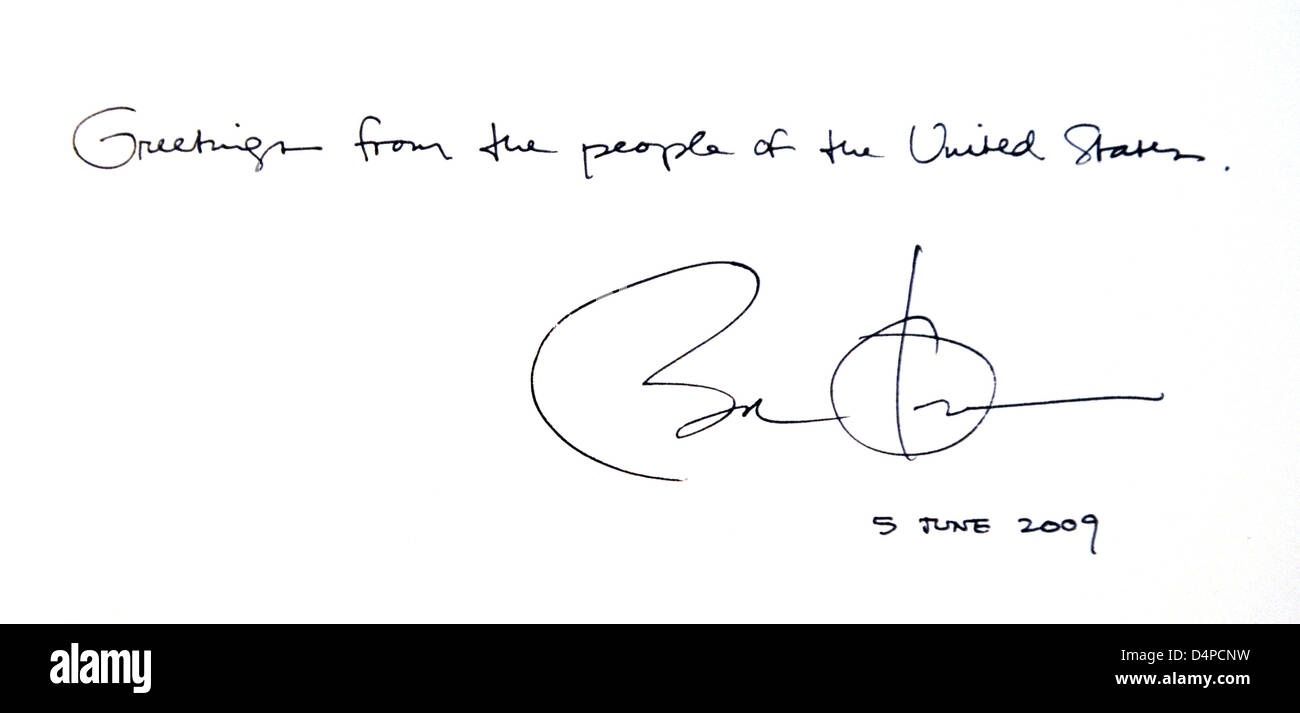 Greetings from the people of the United States.
5 JUNE 2009
alamy
Image ID: D4PCNW
www.alamy.com